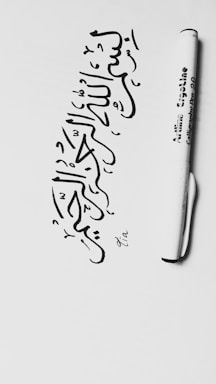 بِسْمِ اللهِ الرَّحْمٰنِ الرَّحِيْمِ
Artline Ergoline
Calligraphy Pen 2.0